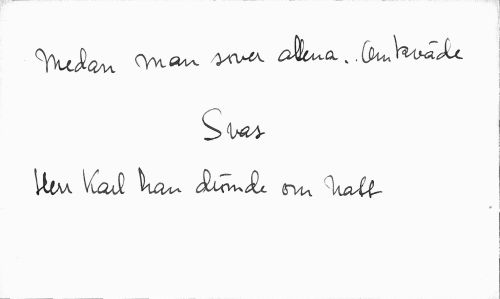 Medan man sover allena.. Omkväde
Svas
Herr Karl han drömde om natt